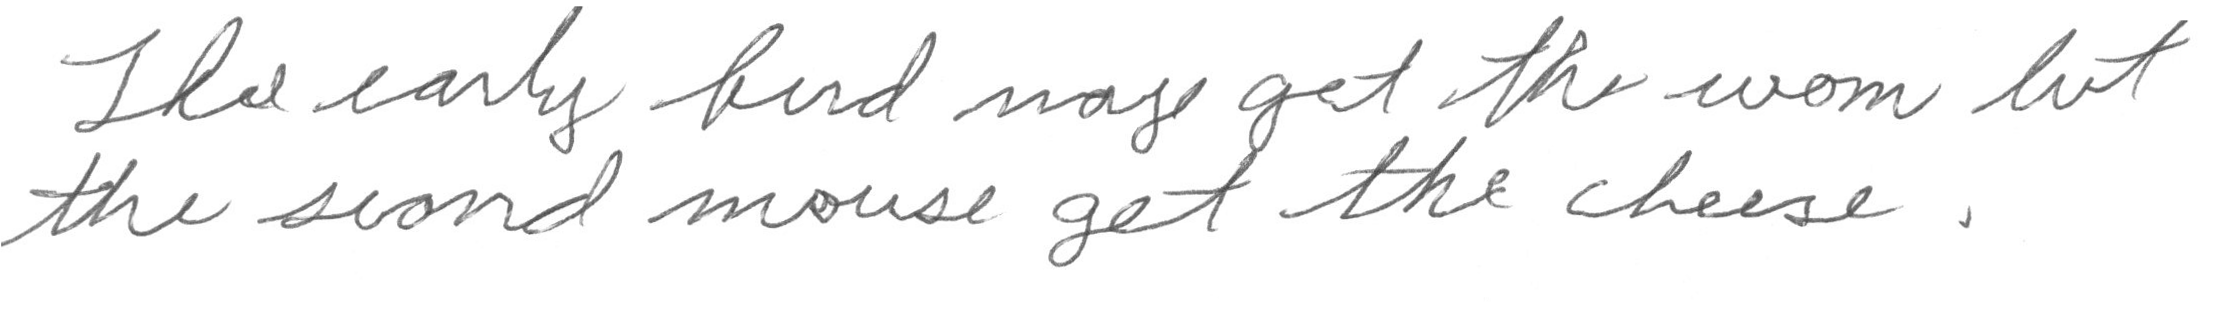 The early bird may get the worm but
the second mouse get the cheese.